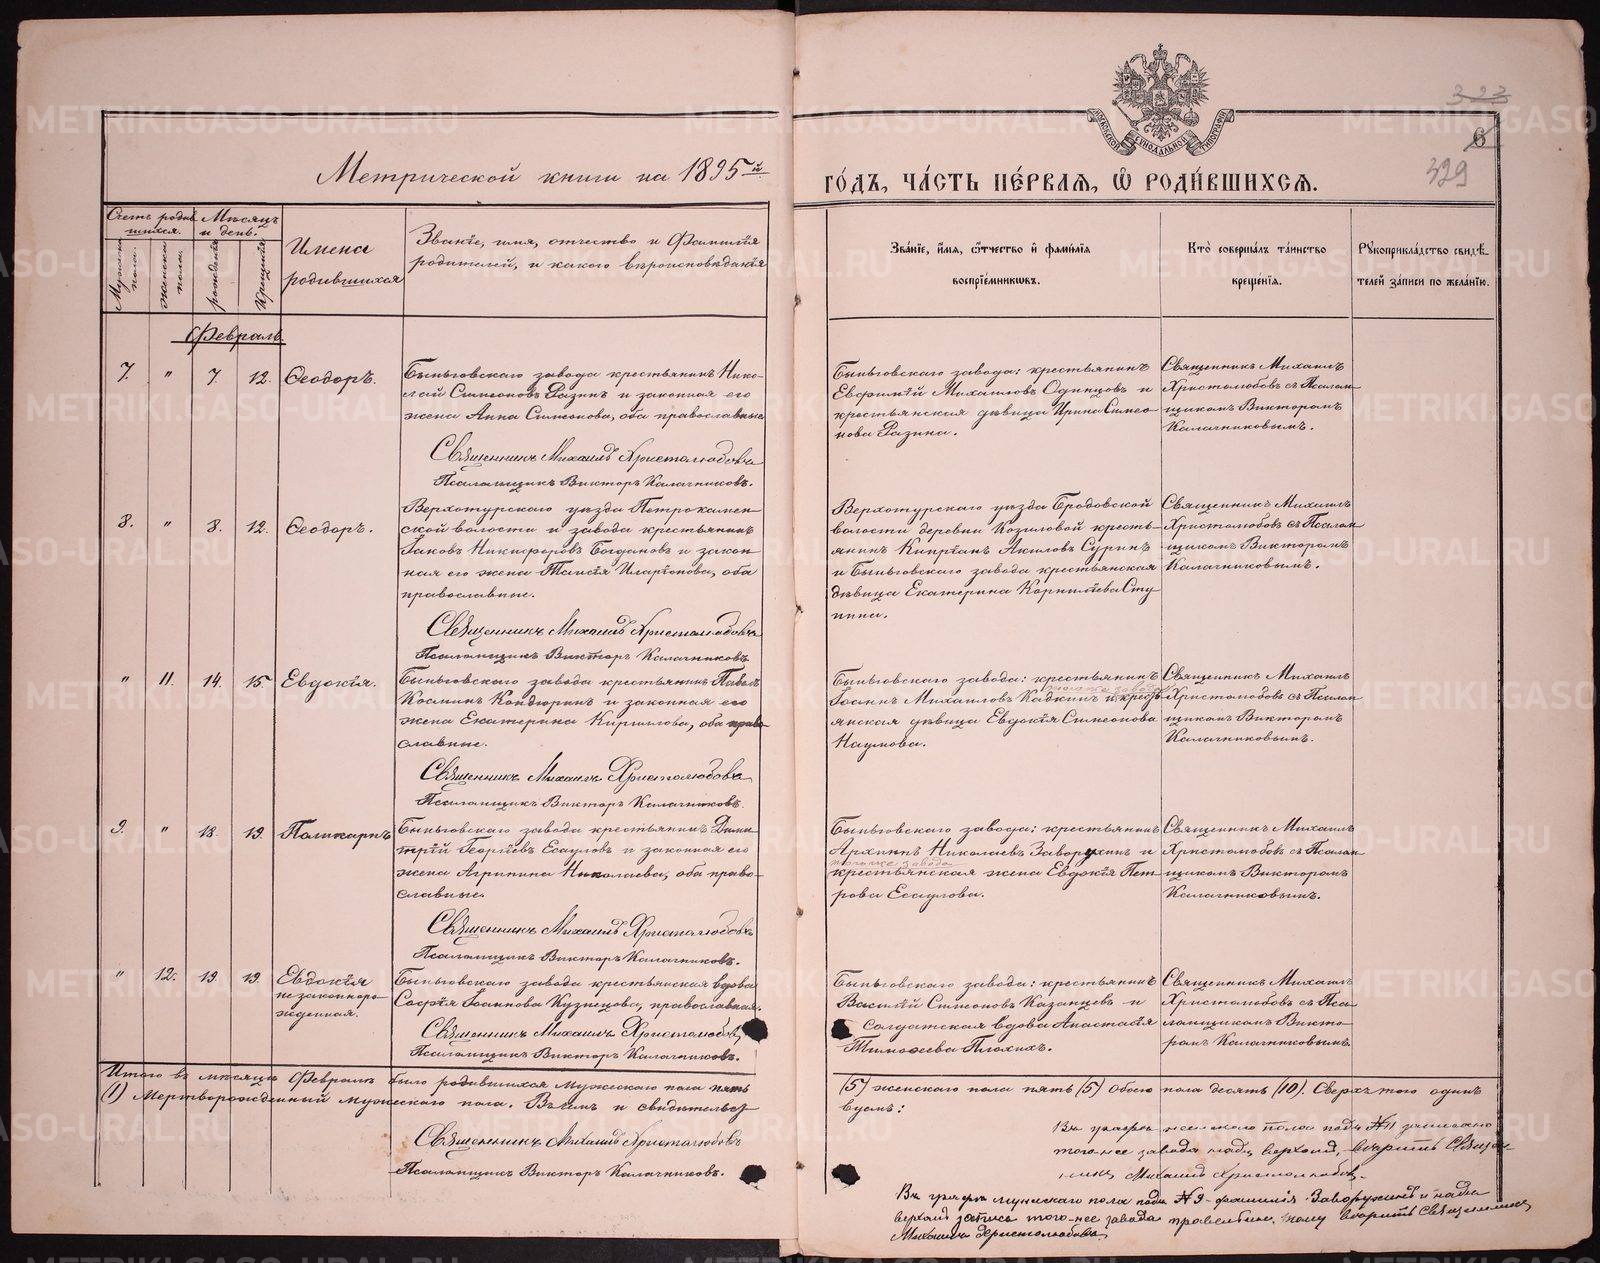 323
6
329
МОСКОВСКОЙ СѴНОДАЛЬНОЙ ТИПОГРАФІИ
Метрической книги на 1895й
го́дъ, ча́сть пе́рваѧ, ѡ҆ роди́вшихсѧ.
Счетъ роди
шихся.
Мужска
пола.
Женска
пола.
Мѣсяцъ
и день.
рожденія
крещенія.
Имена
родившихся
Званіе, имя, отчество и Фамилія
родителей, и какого вѣроисповѣданія
Зва́нїе, и҆́мѧ, ѻ҆́тчество и҆ фами́лїѧ
воспрїе́мникѡвъ.
Кто̀ соверша́лъ та́инство
креще́нїѧ.
Рꙋкоприкла́дство свидѣ́-
телей за́писи по жела́нїю.
Февраль
7. " 7. 12. Ѳеодоръ.
Быньговскаго завода крестьянинъ Нико-
лай Симеоновъ Разинъ и законная его
жена Анна Симонова, оба православные
Священникъ Михаилъ Христолюбовъ
Псаломщикъ Викторъ Калачниковъ.
Быньговскаго завода: крестьянинъ
Евѳимій Михаиловъ Одинцовъ и
крестьянская дѣвица Ирина Симео-
нова Разина.
Священникъ Михаилъ
Христолюбовъ съ Псалом
щикомъ Викторомъ
Калачниковымъ.
8. " 8. 12. Ѳеодоръ.
Верхотурскаго уѣзда Петрокамен-
ской волости и завода крестьянинъ
Іаковъ Никифоровъ Богдановъ и закон-
ная его жена Таисія Иларіонова, оба
православные.
Священникъ Михаилъ Христолюбовъ
Псаломщикъ Викторъ Калачниковъ
Верхотурскаго уѣзда Бродовской
волости деревни Козиловой кресть-
янинъ Кипріанъ Акиловъ Суринъ
и Быньговскаго завода крестьянская
дѣвица Екатерина Корниліева Сту
пина.
Священникъ Михаилъ
Христолюбовъ съ Псалом
щикомъ Викторомъ
Калачниковымъ.
" 11. 14. 15. Евдокія.
Быньговскаго завода крестьянинъ Павелъ
Косминъ Кондюринъ и законная его
жена Екатерина Кириллова, оба право
славные.
Священникъ Михаилъ Христолюбовъ
Псаломщикъ Викторъ Калачниковъ.
Быньговскаго завода: крестьянинъ
того-же завода
Іоаннъ Михаиловъ Кадкинъ и крест
янская дѣвица Евдокія Симеонова
Наумова.
Священникъ Михаилъ
Христолюбовъ съ Псалом
щикомъ Викторомъ
Калачниковымъ.
9. " 18. 19. Поликарпъ
Быньговскаго завода крестьянинъ Дими
трій Георгіевъ Есауловъ и законная его
жена Агрипина Николаева, оба право-
славные.
Священникъ Михаилъ Христолюбовъ
Псаломщикъ Викторъ Калачниковъ.
Быньговскаго завода: крестьянинъ
Архиппъ Николаевъ Заворухинъ и
того-же завода
крестьянская жена Евдокія Пет-
рова Есаулова.
Священникъ Михаилъ
Христолюбовъ съ Псалом
щикомъ Викторомъ
Калачниковымъ.
" 12. 19. 19. Евдокія
незаконноро-
жденная.
Быньговскаго завода крестьянская вдова
Софія Іоаннова Кузнецова, православная.
Священникъ Михаилъ Христолюбовъ
Псаломщикъ Викторъ Калачниковъ.
Быньговскаго завода: крестьянинъ
Василій Симеоновъ Казанцевъ и
Солдатская вдова Анастасія
Тимоѳеева Плохихъ.
Священникъ Михаилъ
Христолюбовъ съ Пса-
ломщикомъ Викто-
ромъ Калачниковымъ
Итого въ мѣсяцѣ Февралѣ было родившихся Мужескаго пола пять
(5) женскаго пола пять (5) обоего пола десять (10). Сверхъ того одинъ
(1) Мертворожденный мужескаго пола. Въ чемъ и свидѣтельст-
вуемъ:
Священникъ Михаилъ Христолюбовъ
Псаломщикъ Викторъ Калачниковъ.
Въ графѣ женскаго пола подъ №11 записано
того-же завода надъ верхомъ, вѣритъ Священ
никъ Михаилъ Христолюбовъ.
Въ графѣ мужскаго пола подъ №9 - фамилія Заворухинъ и надъ
верхомъ запись того-же завода правельны, чему вѣритъ Священникъ
Михаилъ Христолюбовъ.
METRIKI.GASO-URAL.RU